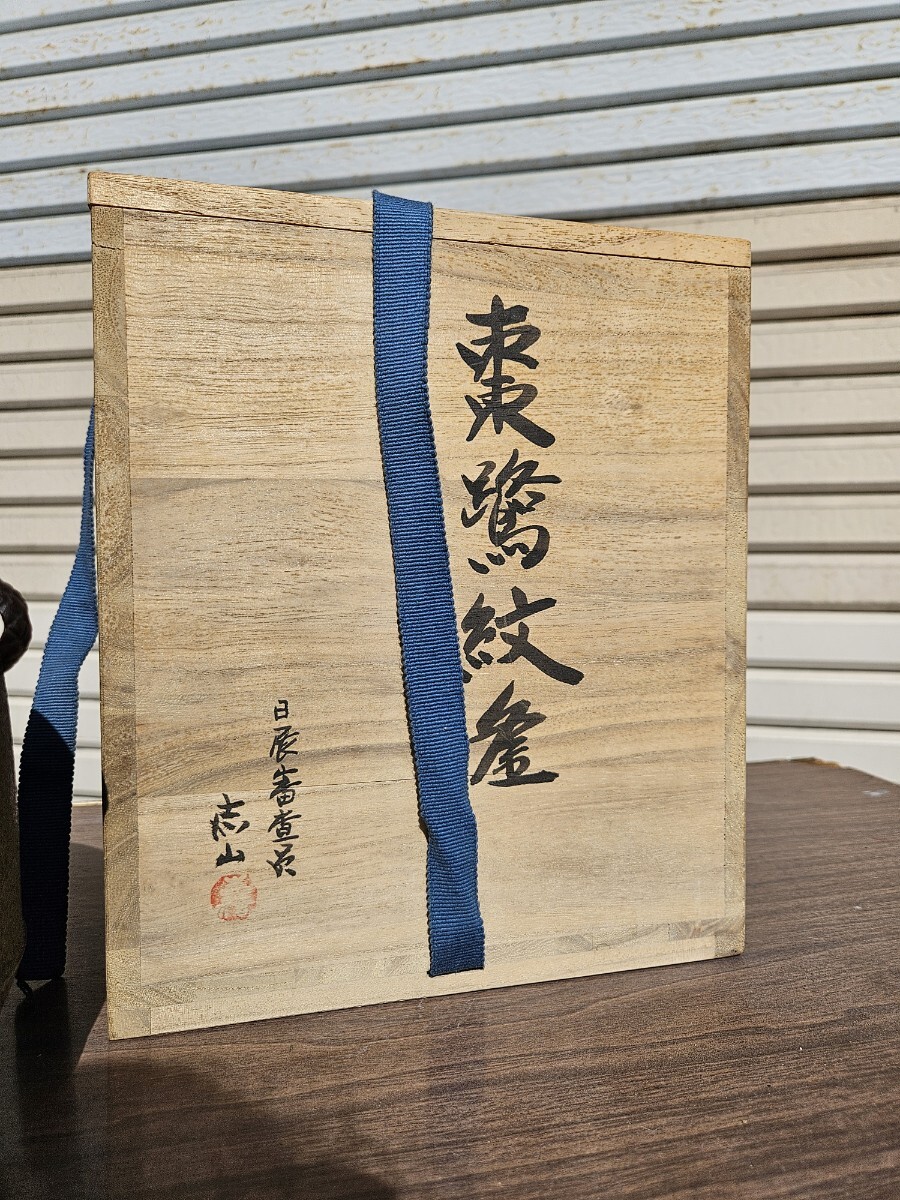 棗鷺紋釜
日展審査員
志山